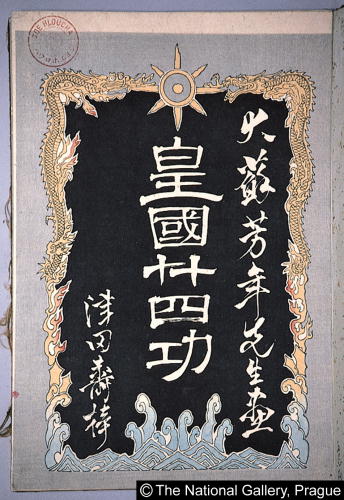 大蘇芳年先生画
皇國廿四功
津田壽梓
© The National Gallery, Prague